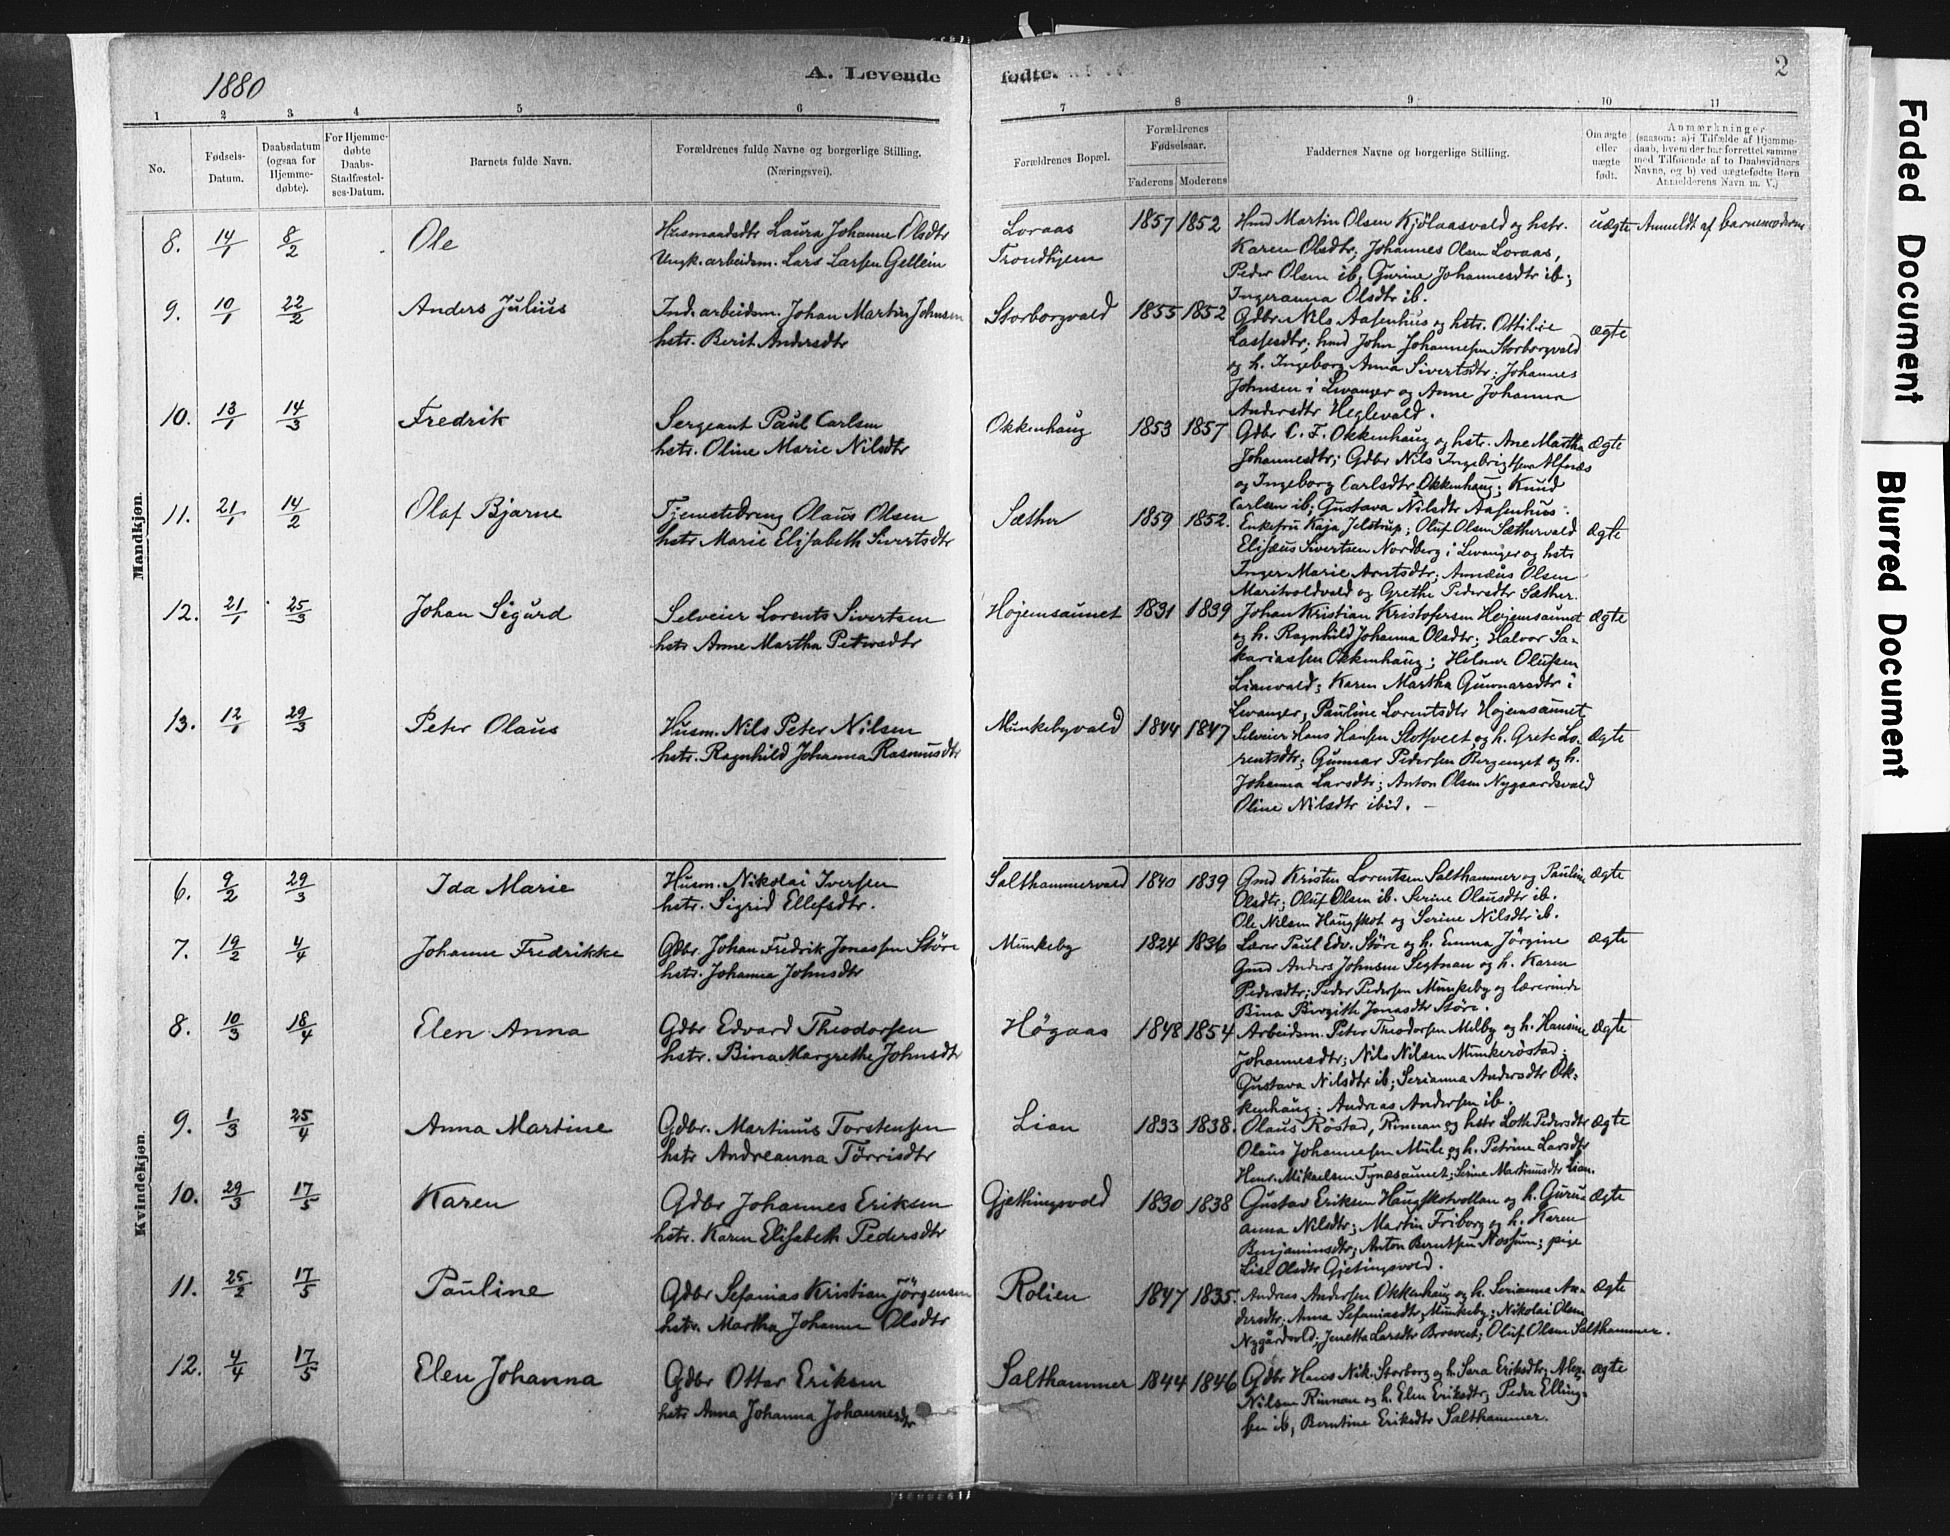 1880
A. Levende fødte. 2
1 2 3 4 5 6 7 8 9 10 11
No.
Fødsels-Datum.
Daabsdatum (ogsaa for Hjemme-døbte).
For Hjemme-døbte Daabs-Stadfæstel-ses-Datum.
Barnets fulde Navn.
Forældrenes fulde Navne og borgerlige Stilling. (Næringsvei).
Forældrenes Bopæl.
Forældrenes Fødselsaar.
Faderens Moderens
Faddernes Navne og borgerlige Stilling.
Om ægte eller uægte født.
Anmærkninger (saasom: a) i Tilfælde af Hjemme-daab, hvem der har forrettet samme, med Tilføiende af to Daabsvidners Navne, og b) ved uægtefødte Børn Anmelderens Navn m. V.)
Mandkjøn.
8. 14/1 8/2 Ole
Husmandsdtr Laura Johanne Olsdtr
Ungk. arbeidsm. Lars Larsen Gellein
Loraas
Trondhjem
1857 1852
Hmd Martin Olsen Kjölaasvald og hstr.
Karen Olsdtr; Johannes Olsen Loraas,
Peder Olsen ib, Gurine Johannesdtr ib;
Ingeranna Olsdtr ib.
uægte Anmeldt af barnemoderen
9. 10/1 22/2 Anders Julius
Ind. arbeidsm. Johan Martin Johnsen
hstr. Berit Andersdtr
Storborgvald
1855 1852
Gdbr. Nils Aasenhus og hstr. Ottilie
Lassesdtr; hmd John Johannesen Storborgvald
og h. Ingeborg Anna Sivertsdtr; Johannes
Johnsen i Levanger og Anne Johanna
Andersdtr Heglevald.
ægte
10. 13/1 14/3 Fredrik
Sergeant Paul Carlsen
hstr. Oline Marie Nilsdtr
Okkenhaug
1853 1857
Gdbr C. F. Okkenhaug og hstr. Ane Martha
Johannesdtr; Gdbr Nils Ingebrigtsen Alfnæs
og Ingeborg Carlsdtr Okkenhaug; Knud
Carlsen ib; Gustava Nilsdtr Aasenhus.
ægte
11. 21/1 14/2 Olaf Bjarne
Tjenestedreng Olaus Olsen
hstr Marie Elisabeth Sivertsdtr
Sæther
1859 1852.
Enkefru Kaja Jelstrup; Oluf Olsen Sæthervald
Elisæus Sivertsen Nordberg i Levanger og hstr
Inger Marie Arntsdtr; Annæus Olsen
Maritvoldvald og Grethe Pedersdtr Sæther.
ægte
12. 21/1 25/3 Johan Sigurd
Selveier Lorents Sivertsen
hstr Anne Martha Petersdtr
Højemsaunet
1831 1839
Johan Kristian Kristofersen Højemsaunet
og h. Ragnhild Johanna Olsdtr; Halvor Sa-
kariassen Okkenhaug; Helmer Olufsen
Lianvald; Karen Martha Gunnarsdtr i
Levanger, Pauline Lorentsdtr Højemsaunet
ægte
13. 12/1 29/3 Peter Olaus
Husm. Nils Peter Nilsen
hstr. Ragnhild Johanna Rasmusdtr
Munkebyvald
1844 1847
Selveier Hans Hansen Slotsveet og h. Grete Lo-
rentsdtr; Gunnar Pedersen Bergenget og h.
Johanna Larsdtr; Anton Olsen Nygaardsvald
Oline Nilsdtr ibid.
ægte
Kvindekjøn.
6. 9/2 29/3 Ida Marie
Husm. Nikolai Iversen
hstr. Sigrid Ellefsdtr.
Salthammervald
1840 1839
Gmd Kristen Lorentsen Salthammer og Pauline
Olsdtr; Oluf Olsen ib. Serine Olausdtr ib.
Ole Nilsen Haugskot og Serine Nilsdtr ib.
ægte
7. 19/2 4/4 Johanne Fredrikke
Gdbr. Johan Fredrik Jonassen Störe
hstr. Johanna Johnsdtr
Munkeby
1824 1836
Lærer Paul Edv. Störe og h. Emma Jörgine
Gmd Anders Johnsen Segtnan og h. Karen
Pedersdtr; Peder Pedersen Munkeby og lærerinde
Bina Birgith Jonasdtr Störe.
ægte
8. 10/3 18/4 Elen Anna
Gdbr Edvard Theodorsen
hstr. Bina Margrethe Johnsdtr
Högaas
1848 1854
Arbeidsm. Peter Theodorsen Melby og h. Hansine
Johannesdtr; Nils Nilsen Munkeröstad;
Gustava Nilsdtr ib; Serianna Andersdtr Ok-
kenhaug; Andreas Andersen ib.
ægte
9. 1/3 25/4 Anna Martine
Gdbr. Martinus Torstensen
hstr Andreanna Törrisdtr
Lian
1833 1838.
Olaus Röstad, Rinnan og hstr Loth. Pedersdtr
Olaus Johannesen Mule og h. Petrine Larsdtr
Henr. Mikaelsen Tynæsaunet; Serine Martinusdtr Lian.
ægte
10. 29/3 17/5 Karen
Gdbr Johannes Eriksen
hstr. Karen Elisabeth Pedersdtr
Gjethingsvold
1830 1838
Gustav Eriksen Haugskotvollan og h. Guru-
anna Nilsdtr; Martin Friborg og h. Karen
Benjaminsdtr; Anton Berntsen Nossum; pige
Lise Olsdtr Gjetingsvold.
ægte
11. 25/2 17/5 Pauline
Gdbr Sefanias Kristian Jörgensen
hstr. Martha Johanne Olsdtr
Rolien
1847 1835.
Andreas Andersen Okkenhaug og h. Serianna An-
dersdtr; Anna Sefaniasdtr Munkeby; Nikolai Olsen
Nygårdsvold; Jenetta Larsdtr Broveet; Oluf Olsen Salthammer.
ægte
12. 4/4 17/5 Elen Johanna
Gdbr Ottar Eriksen
hstr Anna Johanna Johannesdtr
Salthammer
1844 1846
Gdbr Hans Nik. Storborg og h. Sara Eriksdtr; Alex.
Nilsen Rinnan og h. Elen Eriksdtr; Peder Elling-
sen ib, Berntine Eriksdtr Salthammer.
ægte
Faded Document
Blurred Document